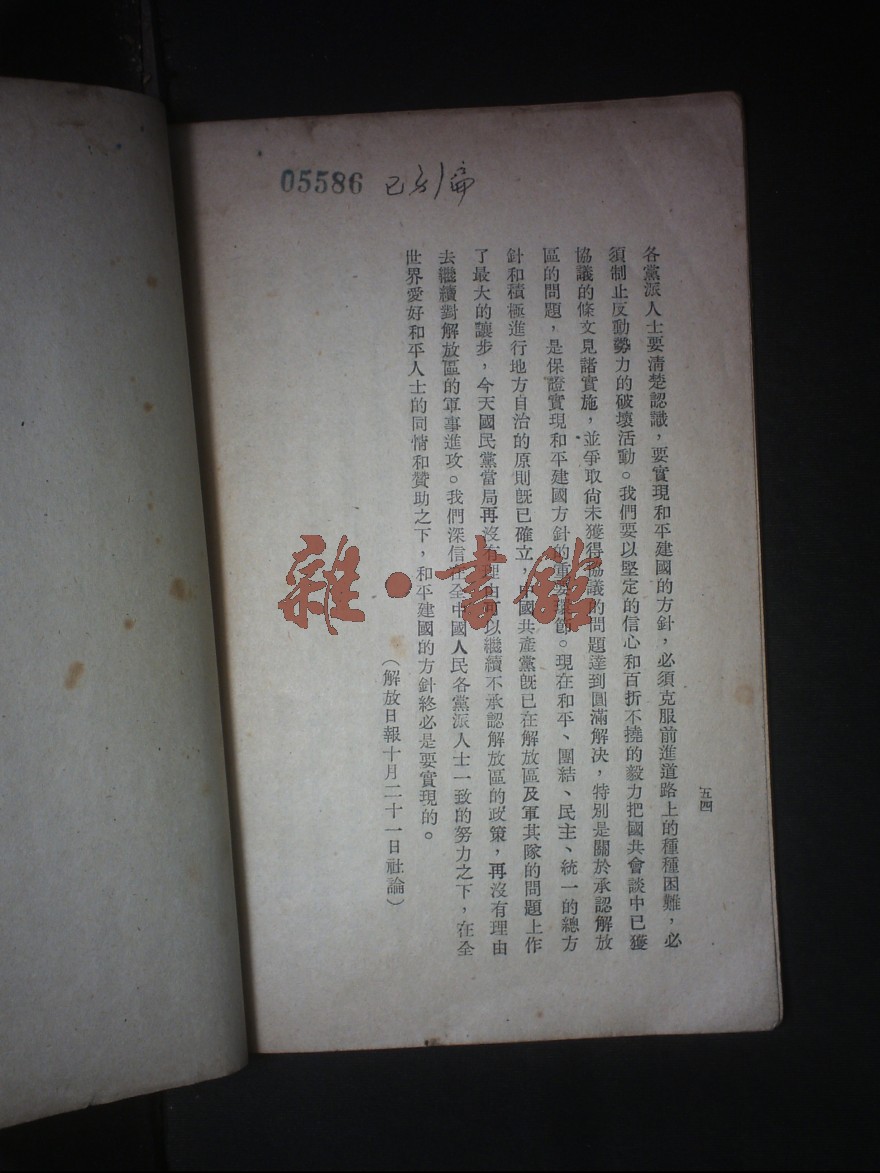 05586 已
五四
各黨派人士要清楚認識，要實現和平建國的方針，必須克服前進道路上的種種困難，必
須制止反動勢力的破壞活動。我們要以堅定的信心和百折不撓的毅力把國共會談中已獲
協議的條文見諸實施，並爭取尙未獲得協議的問題達到圓滿解決，特別是關於承認解放
區的問題，是保證實現和平建國方針的重要環節。現在和平、團結、民主、統一的總方
針和積極進行地方自治的原則旣已確立，中國共產黨旣已在解放區及軍其隊的問題上作
了最大的讓步，今天國民黨當局再沒有理由可以繼續不承認解放區的政策，再沒有理由
去繼續對解放區的軍事進攻。我們深信在全中國人民各黨派人士一致的努力之下，在全
世界愛好和平人士的同情和贊助之下，和平建國的方針終必是要實現的。
（解放日報十月二十一日社論）
雜·書館